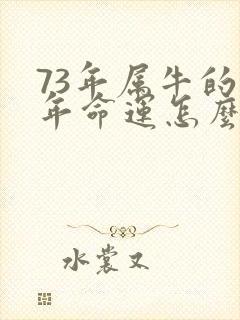 73年属牛的
年命運怎麼
水裳又